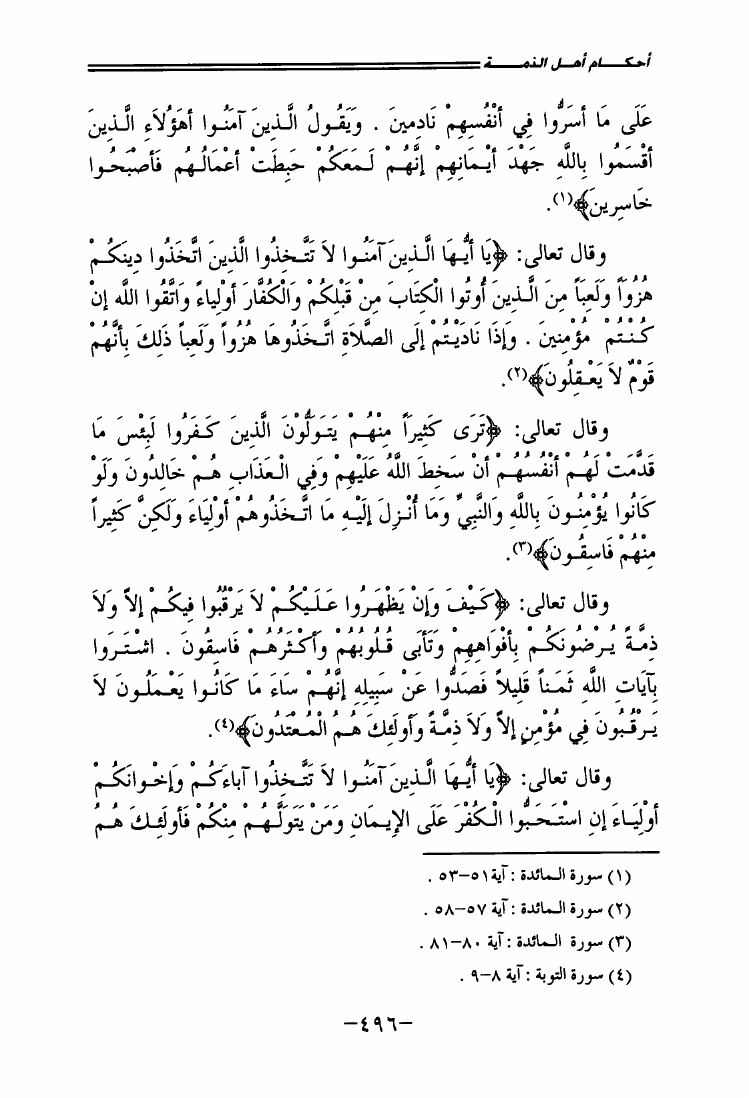 أحكـــام أهــل الذمـــــة
عَلَى مَا أَسَرُّوا فِي أَنْفُسِهِمْ نَادِمِينَ . وَيَقُولُ الَّذِينَ آمَنُوا أَهَؤُلَاءِ الَّذِينَ
أَقْسَمُوا بِاللَّهِ جَهْدَ أَيْمَانِهِمْ إِنَّهُمْ لَمَعَكُمْ حَبِطَتْ أَعْمَالُهُم فَأَصْبَحُوا
خَاسِرِينَ﴾(١).
وقال تعالى: ﴿يَا أَيُّهَا الَّذِينَ آمَنُوا لاَ تَتَّخِذُوا الَّذِينَ اتَّخَذُوا دِينَكُمْ
هُزُواً وَلَعِباً مِنَ الَّذِينَ أُوتُوا الْكِتَابَ مِنْ قَبْلِكُمْ وَالْكُفَّارَ أَوْلِيَاءَ وَاتَّقُوا الله إِنْ
كُنْتُمْ مُؤْمِنِينَ . وَإِذَا نَادَيْتُمْ إِلَى الصَّلَاةِ اتَّخَذُوهَا هُزُواً وَلَعِباً ذَلِكَ بِأَنَّهُمْ
قَوْمٌ لاَ يَعْقِلُونَ﴾(٢).
وقال تعالى: ﴿تَرَى كَثِيراً مِنْهُمْ يَتَوَلَّوْنَ الَّذِينَ كَفَرُوا لَبِئْسَ مَا
قَدَّمَتْ لَهُمْ أَنْفُسُهُمْ أَنْ سَخِطَ اللَّهُ عَلَيْهِمْ وَفِي الْعَذَابِ هُمْ خَالِدُونَ وَلَوْ
كَانُوا يُؤْمِنُونَ بِاللَّهِ وَالنَّبِيِّ وَمَا أُنْزِلَ إِلَيْهِ مَا اتَّخَذُوهُمْ أَوْلِيَاءَ وَلَكِنَّ كَثِيراً
مِنْهُمْ فَاسِقُونَ﴾(٣).
وقال تعالى: ﴿كَيْفَ وَإِنْ يَظْهَرُوا عَلَيْكُمْ لاَ يَرْقُبُوا فِيكُمْ إِلاًّ وَلاَ
ذِمَّةً يُرْضُونَكُمْ بِأَفْوَاهِهِمْ وَتَأْبَى قُلُوبُهُمْ وَأَكْثَرُهُمْ فَاسِقُونَ . اشْتَرَوا
بِآيَاتِ اللَّهِ ثَمَناً قَلِيلاً فَصَدُّوا عَنْ سَبِيلِهِ إِنَّهُمْ سَاءَ مَا كَانُوا يَعْمَلُونَ لاَ
يَرْقُبُونَ فِي مُؤْمِنٍ إِلاًّ وَلاَ ذِمَّةً وَأُولَئِكَ هُمُ الْمُعْتَدُونَ﴾(٤).
وقال تعالى: ﴿يَا أَيُّهَا الَّذِينَ آمَنُوا لاَ تَتَّخِذُوا آبَاءَكُمْ وَإِخْوَانَكُمْ
أَوْلِيَاءَ إِنِ اسْتَحَبُّوا الْكُفْرَ عَلَى الإِيمَانِ وَمَنْ يَتَوَلَّهُمْ مِنْكُمْ فَأُولَئِكَ هُمُ
(١) سورة المائدة : آية ٥١–٥٣ .
(٢) سورة المائدة : آية ٥٧–٥٨ .
(٣) سورة المائدة : آية ٨٠–٨١ .
(٤) سورة التوبة : آية ٨–٩ .
–٤٩٦–